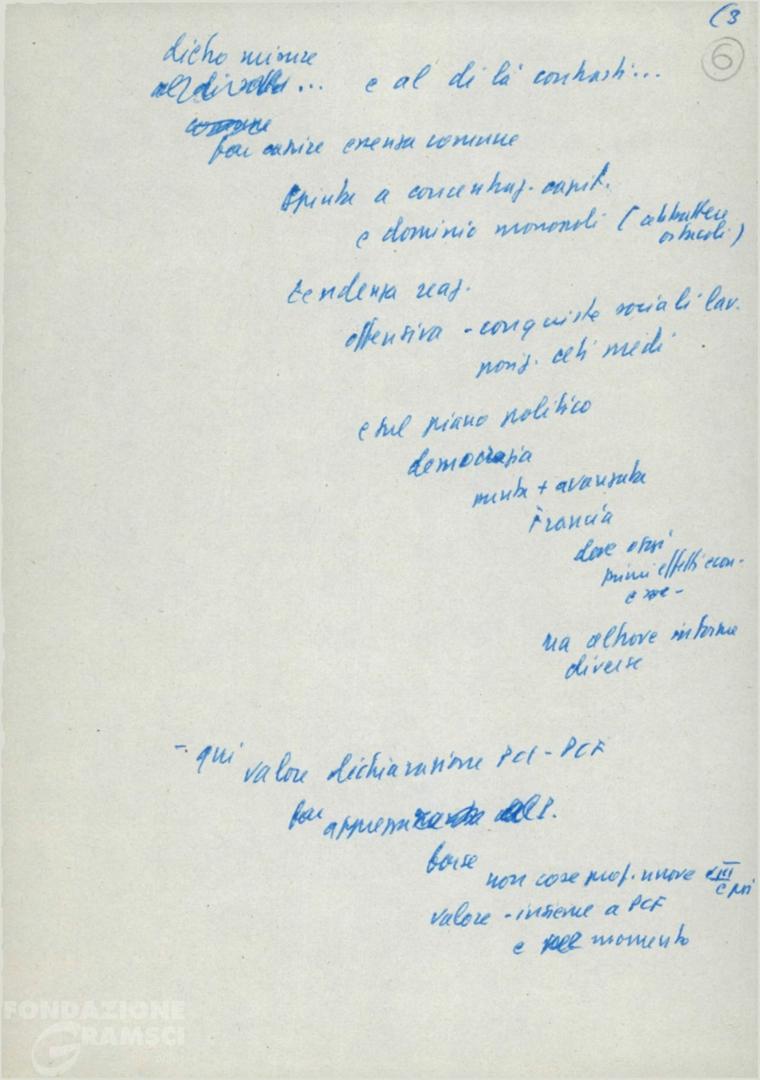 (3
6
dietro misure
al di là ... e al di là contrasti...
comune
far capire essenza comune
spinta a concentraz. capit.
e dominio monopoli (abbattere
ostacoli)
tendenza reaz.
offensiva - conquiste sociali lav.
posiz. ceti medi
e sul piano politico
democrazia
punta + avanzata
Francia
dove ossi
primi effetti econ.
e
ma altrove in forme
diverse
- qui valore dichiarazione PCI - PCF
far
forse
non cose prof. nuove VIII
e poi
valore - insieme a PCF
e momento
FONDAZIONE
GRAMSCI